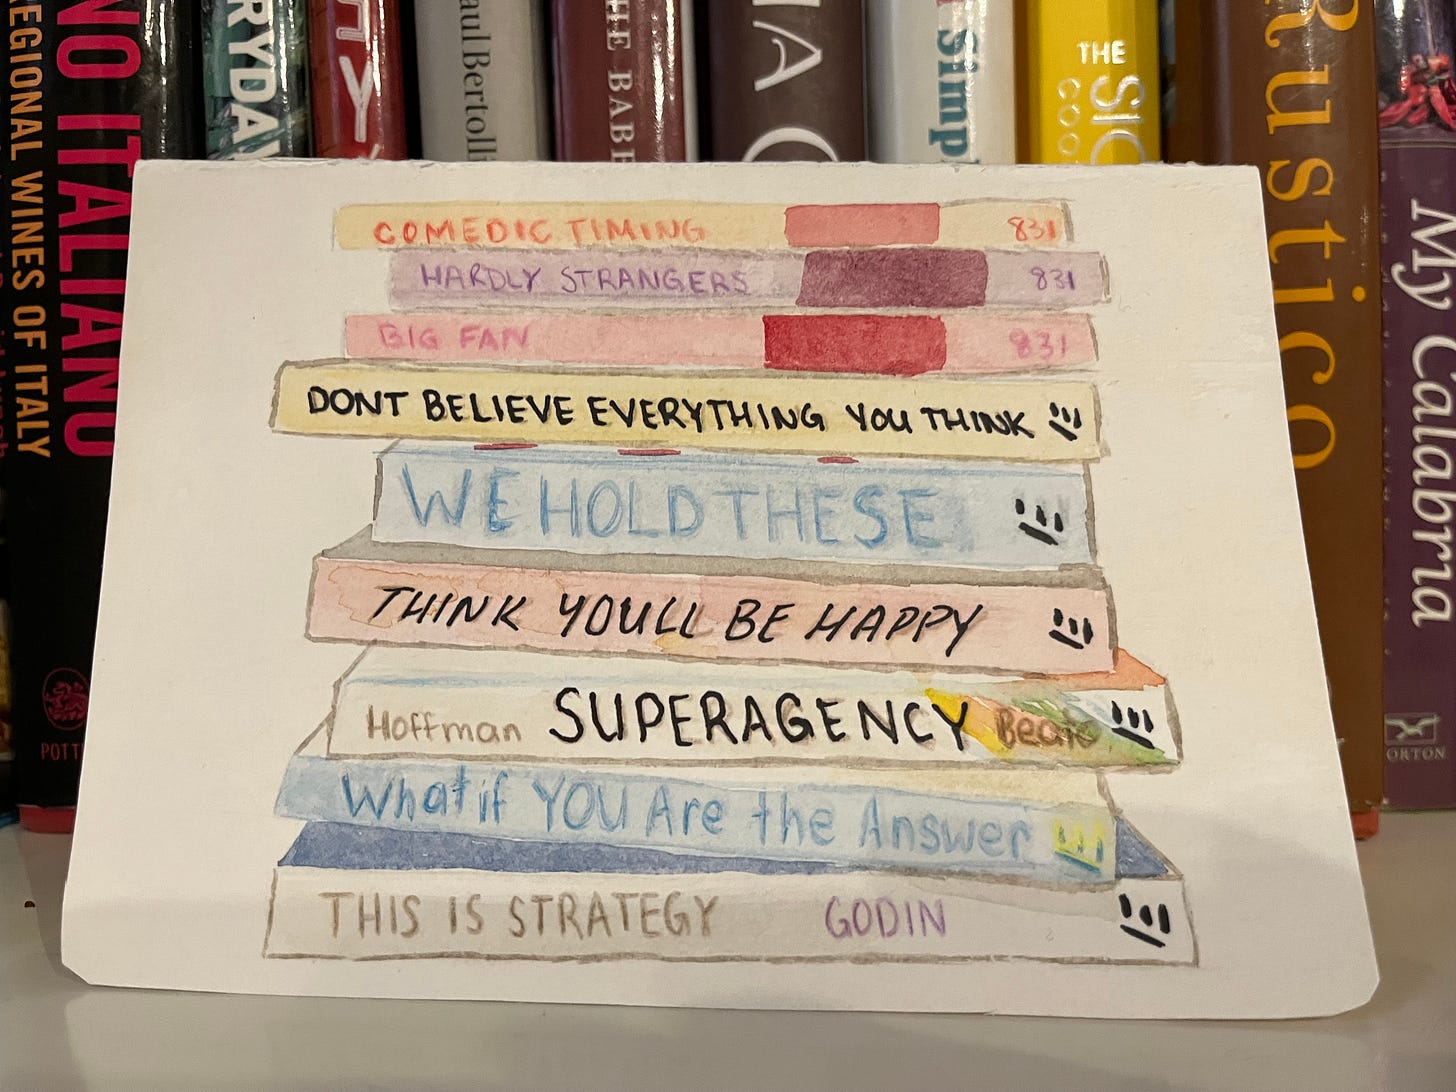 NO ITALIANO
EGIONAL WINES OF ITALY
RYDA
TY
aulBertolli
THE BABB
Simp
THE
SIC
COO
Rustico
My Calabria
ORTON
COMEDIC TIMING 831
HARDLY STRANGERS 831
BIG FAN 831
DONT BELIEVE EVERYTHING YOU THINK
WE HOLD THESE
THINK YOULL BE HAPPY
Hoffman SUPERAGENCY Beato
What if YOU Are the Answer
THIS IS STRATEGY GODIN